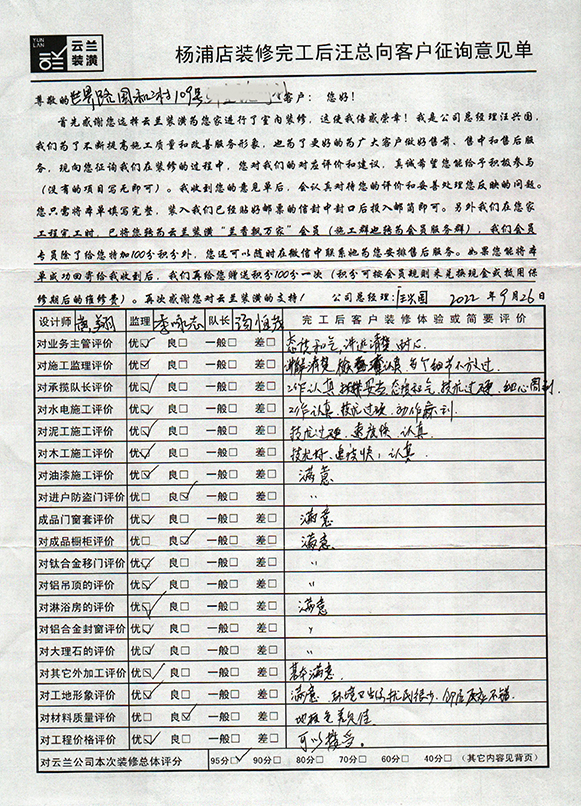 YUN LAN 云兰装潢
杨浦店装修完工后汪总向客户征询意见单
尊敬的世界路国和 109号 客户： 您好！
首先感谢您选择云兰装潢为您家进行了室内装修，这使我倍感荣幸！我是公司总经理汪兴国，
我们为了不断提高施工质量和改善服务形象，也为了更好的为广大客户做好售前、售中和售后服
务，现向您征询我们在装修的过程中，您对我们的对应评价和建议，真诚希望您能给予积极参与
（没有的项目写无即可）。我收到您的意见单后，会认真对待您的评价和妥善处理您反映的问题。
您只需将本单填写完整，装入我们已经贴好邮票的信封中封口后投入邮筒即可。另外我们在您家
工程完工时，已将您转为云兰装潢“兰香飘万家”会员（施工群也转为会员服务群），我们会员
专员除了给您特加100分积分外，您还可以随时在微信中联系他为您安排售后服务。如果您能将本
单成功回寄给我收到后，我们再给您赠送积分100分一次（积分可按会员规则来兑换现金或抵用保
修期后的维修费）。再次感谢您对云兰装潢的支持！ 公司总经理：汪兴国 2022年9月26日
设计师 监理 队长 完工后客户装修体验或简要评价
对业务主管评价 优☑ 良□ 一般□ 差□ 态度和气，讲述清楚 耐心
对施工监理评价 优☑ 良□ 一般□ 差□ 讲解清楚 认真 每个细节不放过
对承揽队长评价 优☑ 良□ 一般□ 差□ 工作认真 态度和气 技术过硬 细心周到
对水电施工评价 优☑ 良□ 一般□ 差□ 工作认真，技术过硬，动作麻利
对泥工施工评价 优☑ 良□ 一般□ 差□ 技术过硬，速度快，认真
对木工施工评价 优☑ 良□ 一般□ 差□ 技术好，速度快，认真
对油漆施工评价 优☑ 良□ 一般□ 差□ 满意
对进户防盗门评价 优□ 良☑ 一般□ 差□ 〃
成品门窗套评价 优☑ 良□ 一般□ 差□ 满意
对成品橱柜评价 优□ 良☑ 一般□ 差□ 满意
对钛合金移门评价 优☑ 良□ 一般□ 差□ 〃
对铝吊顶的评价 优☑ 良□ 一般□ 差□ 〃
对淋浴房的评价 优☑ 良□ 一般□ 差□ 满意
对铝合金封窗评价 优☑ 良□ 一般□ 差□ 〃
对大理石的评价 优☑ 良□ 一般□ 差□ 〃
对其它外加工评价 优☑ 良□ 一般□ 差□ 基本满意
对工地形象评价 优☑ 良□ 一般□ 差□ 满意 环境卫生好，扰民很少，邻居反应不错
对材料质量评价 优□ 良☑ 一般□ 差□ 地板色差欠佳
对工程价格评价 优☑ 良□ 一般□ 差□ 可以接受。
对云兰公司本次装修总体评分 95分☑ 90分□ 80分□ 70分□ 60分□ 40分□ （其它内容见背页）